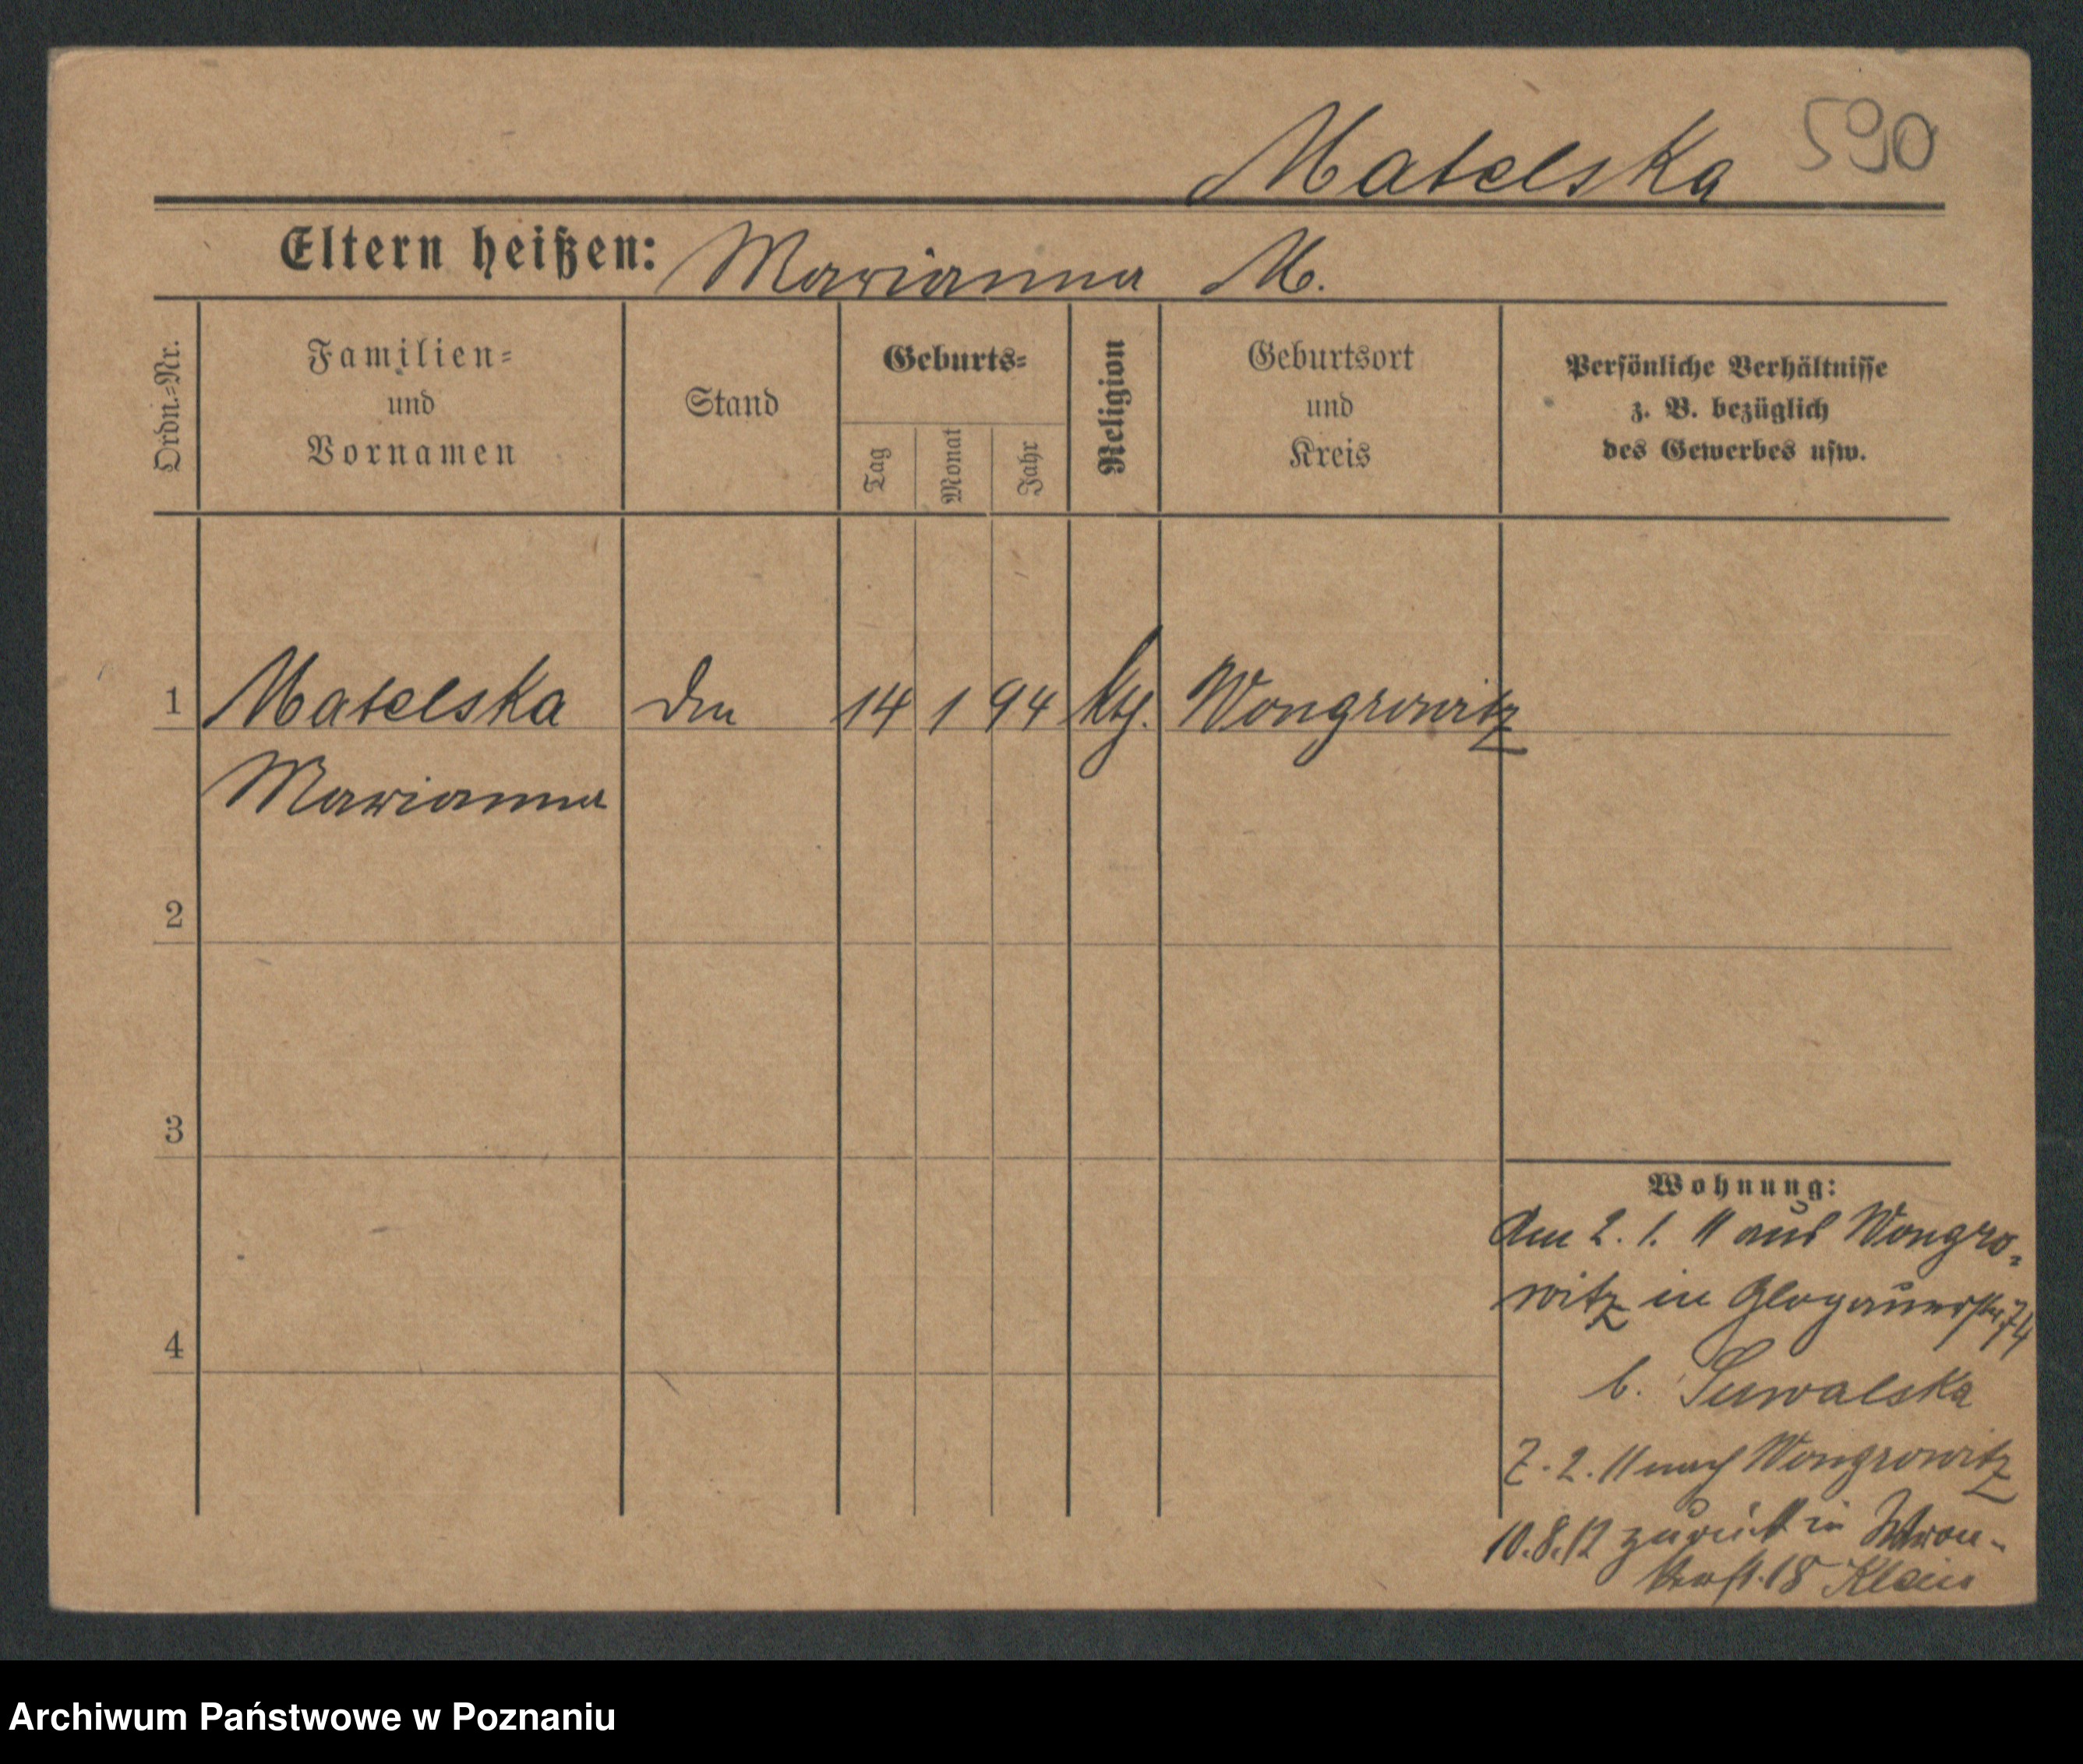 590
Matelska
Eltern heißen: Marianna M.
Ordn.-Nr.
Familien-
und
Vornamen
Stand
Geburts-
Tag
Monat
Jahr
Religion
Geburtsort
und
Kreis
Persönliche Verhältnisse
z. B. bezüglich
des Gewerbes usw.
1 Matelska 14 1 94 kth. Wongrowitz
Marianna
2
3
4
Wohnung:
Am 2. 1. 11 aus Wongro-
witz in Glogauerstr. 74
b. Suwalska
7. 2. 11 nach Wongrowitz
10.8.12 zurück in Wron-
kerst. 18 Klein
Archiwum Państwowe w Poznaniu